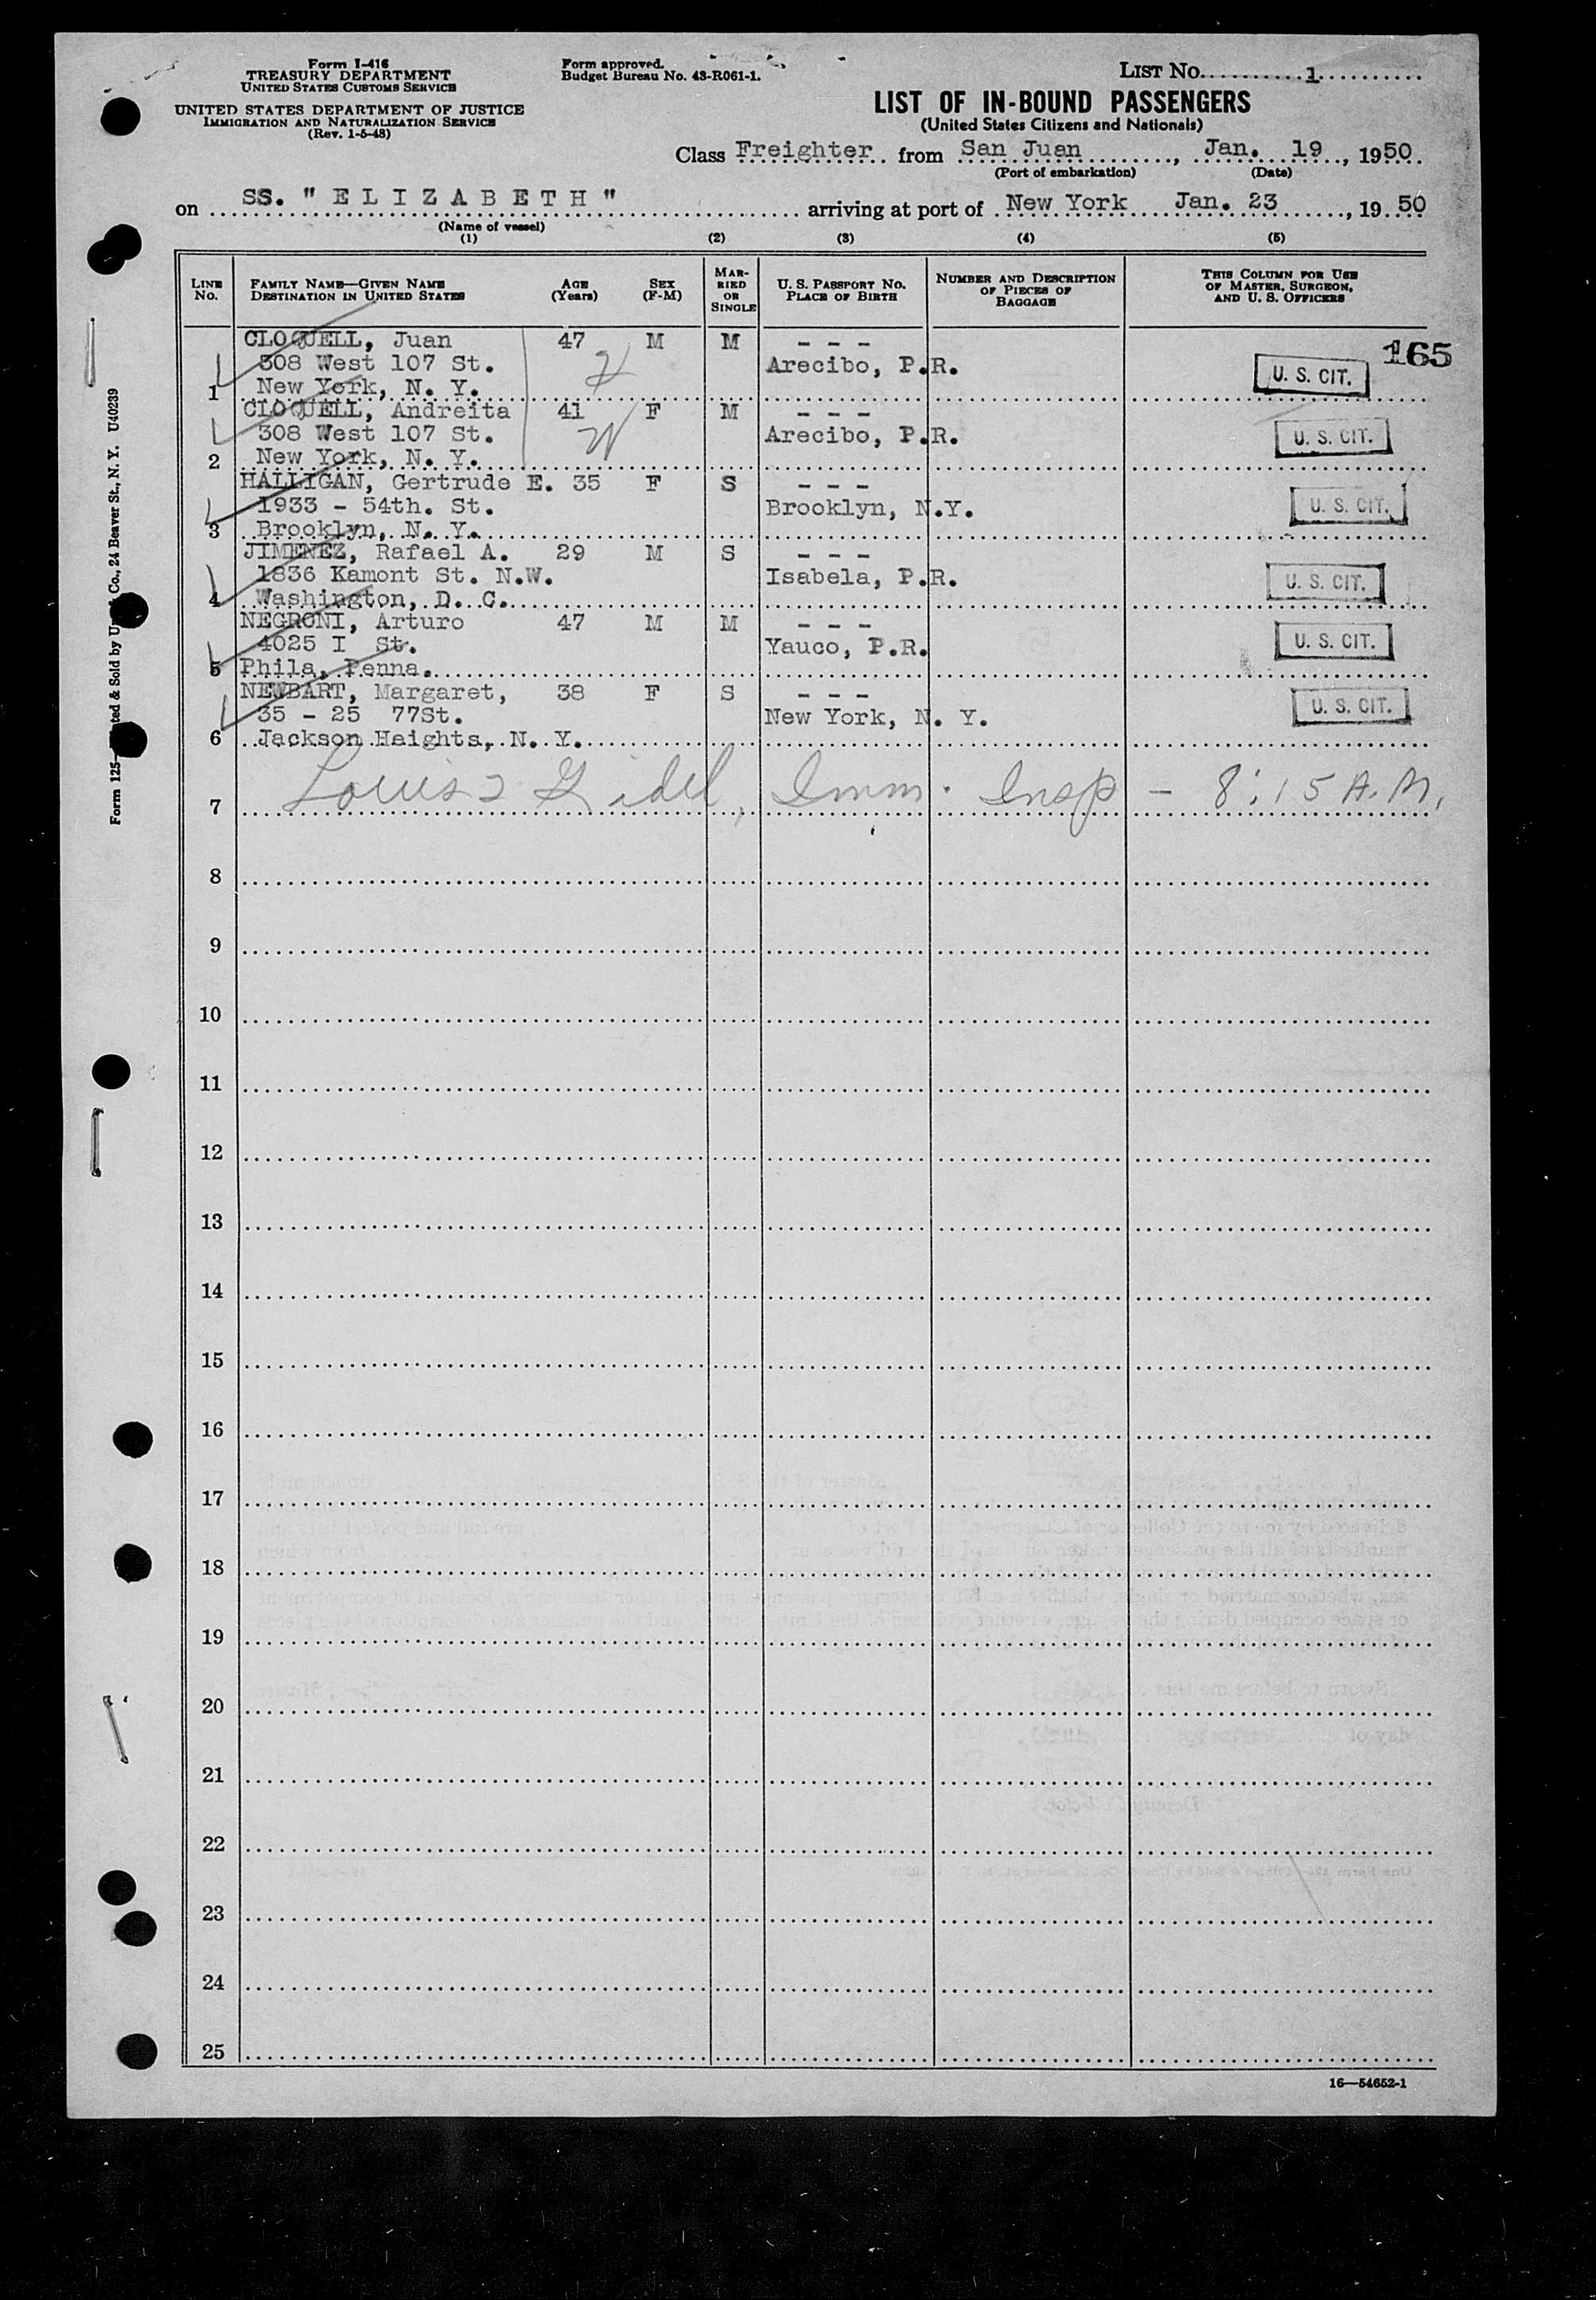 Form I-416
TREASURY DEPARTMENT
UNITED STATES CUSTOMS SERVICE
UNITED STATES DEPARTMENT OF JUSTICE
IMMIGRATION AND NATURALIZATION SERVICE
(Rev. 1-5-48)
Form approved.
Budget Bureau No. 43-R061-1.
LIST No. 1
LIST OF IN-BOUND PASSENGERS
(United States Citizens and Nationals)
Class Freighter from San Juan, Jan. 19, 1950
(Port of embarkation) (Date)
on SS. " E L I Z A B E T H " arriving at port of New York Jan. 23, 1950
(Name of vessel)
(1) (2) (3) (4) (5)
LINE No.
FAMILY NAME—GIVEN NAME
DESTINATION IN UNITED STATES
AGE (Years)
SEX (F-M)
MARRIED OR SINGLE
U. S. PASSPORT NO.
PLACE OF BIRTH
NUMBER AND DESCRIPTION OF PIECES OF BAGGAGE
THIS COLUMN FOR USE OF MASTER, SURGEON, AND U. S. OFFICERS
165
CLOQUELL, Juan 47 M M - - -
308 West 107 St. Arecibo, P.R. U. S. CIT.
1 New York, N. Y.
CLOQUELL, Andreita 41 F M - - -
308 West 107 St. Arecibo, P.R. U. S. CIT.
2 New York, N. Y.
HALLIGAN, Gertrude E. 35 F S - - -
1933 - 54th. St. Brooklyn, N.Y. U. S. CIT.
3 Brooklyn, N. Y.
JIMENEZ, Rafael A. 29 M S - - -
1836 Kamont St. N.W. Isabela, P.R. U. S. CIT.
4 Washington, D. C.
NEGRONI, Arturo 47 M M - - -
4025 I St. Yauco, P.R. U. S. CIT.
5 Phila, Penna.
NEWBART, Margaret, 38 F S - - -
35 - 25 77St. New York, N. Y. U. S. CIT.
6 Jackson Heights, N. Y.
7 Louis Imm. Insp - 8:15 A.M.
8
9
10
11
12
13
14
15
16
17
18
19
20
21
22
23
24
25
16—54652-1
Form 125 & Sold by Co., 24 Beaver St., N. Y. U40239